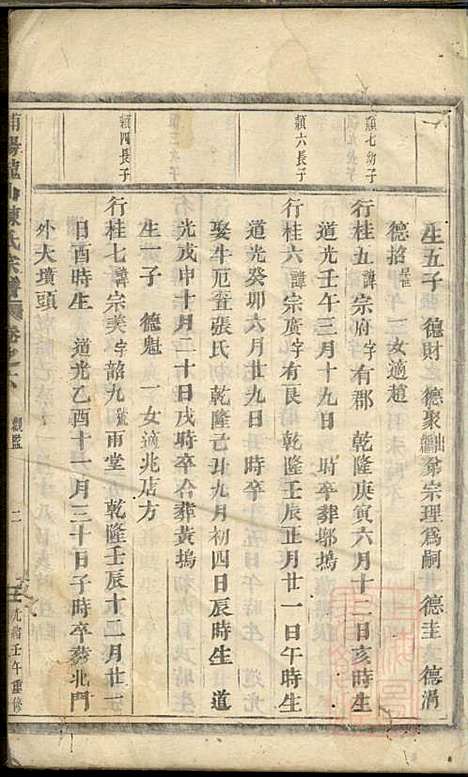 生五子 德財 德聚出繼弟宗理爲嗣 德圭 德渭
德招 一女適趙
類七幼子
行桂五諱宗府字有郡 乾隆庚寅六月十二日亥時生
道光壬午三月十九日 時卒葬鄔塢
類六長子
行桂六諱宗廣字有良 乾隆壬辰正月廿一日午時生
道光癸卯六月廿九日 時卒
娶牛厄荁張氏 乾隆己丑九月初四日辰時生 道
光戊申十月二十日戌時卒合葬黃塢
生一子 德魁 一女適兆店方
類四長子
行桂七諱宗美字韶九號雨堂 乾隆壬辰十二月廿二
日酉時生 道光乙酉十一月三十日子時卒葬北門
外大墳頭
陳氏宗譜 卷之八 二 光緒壬午重修